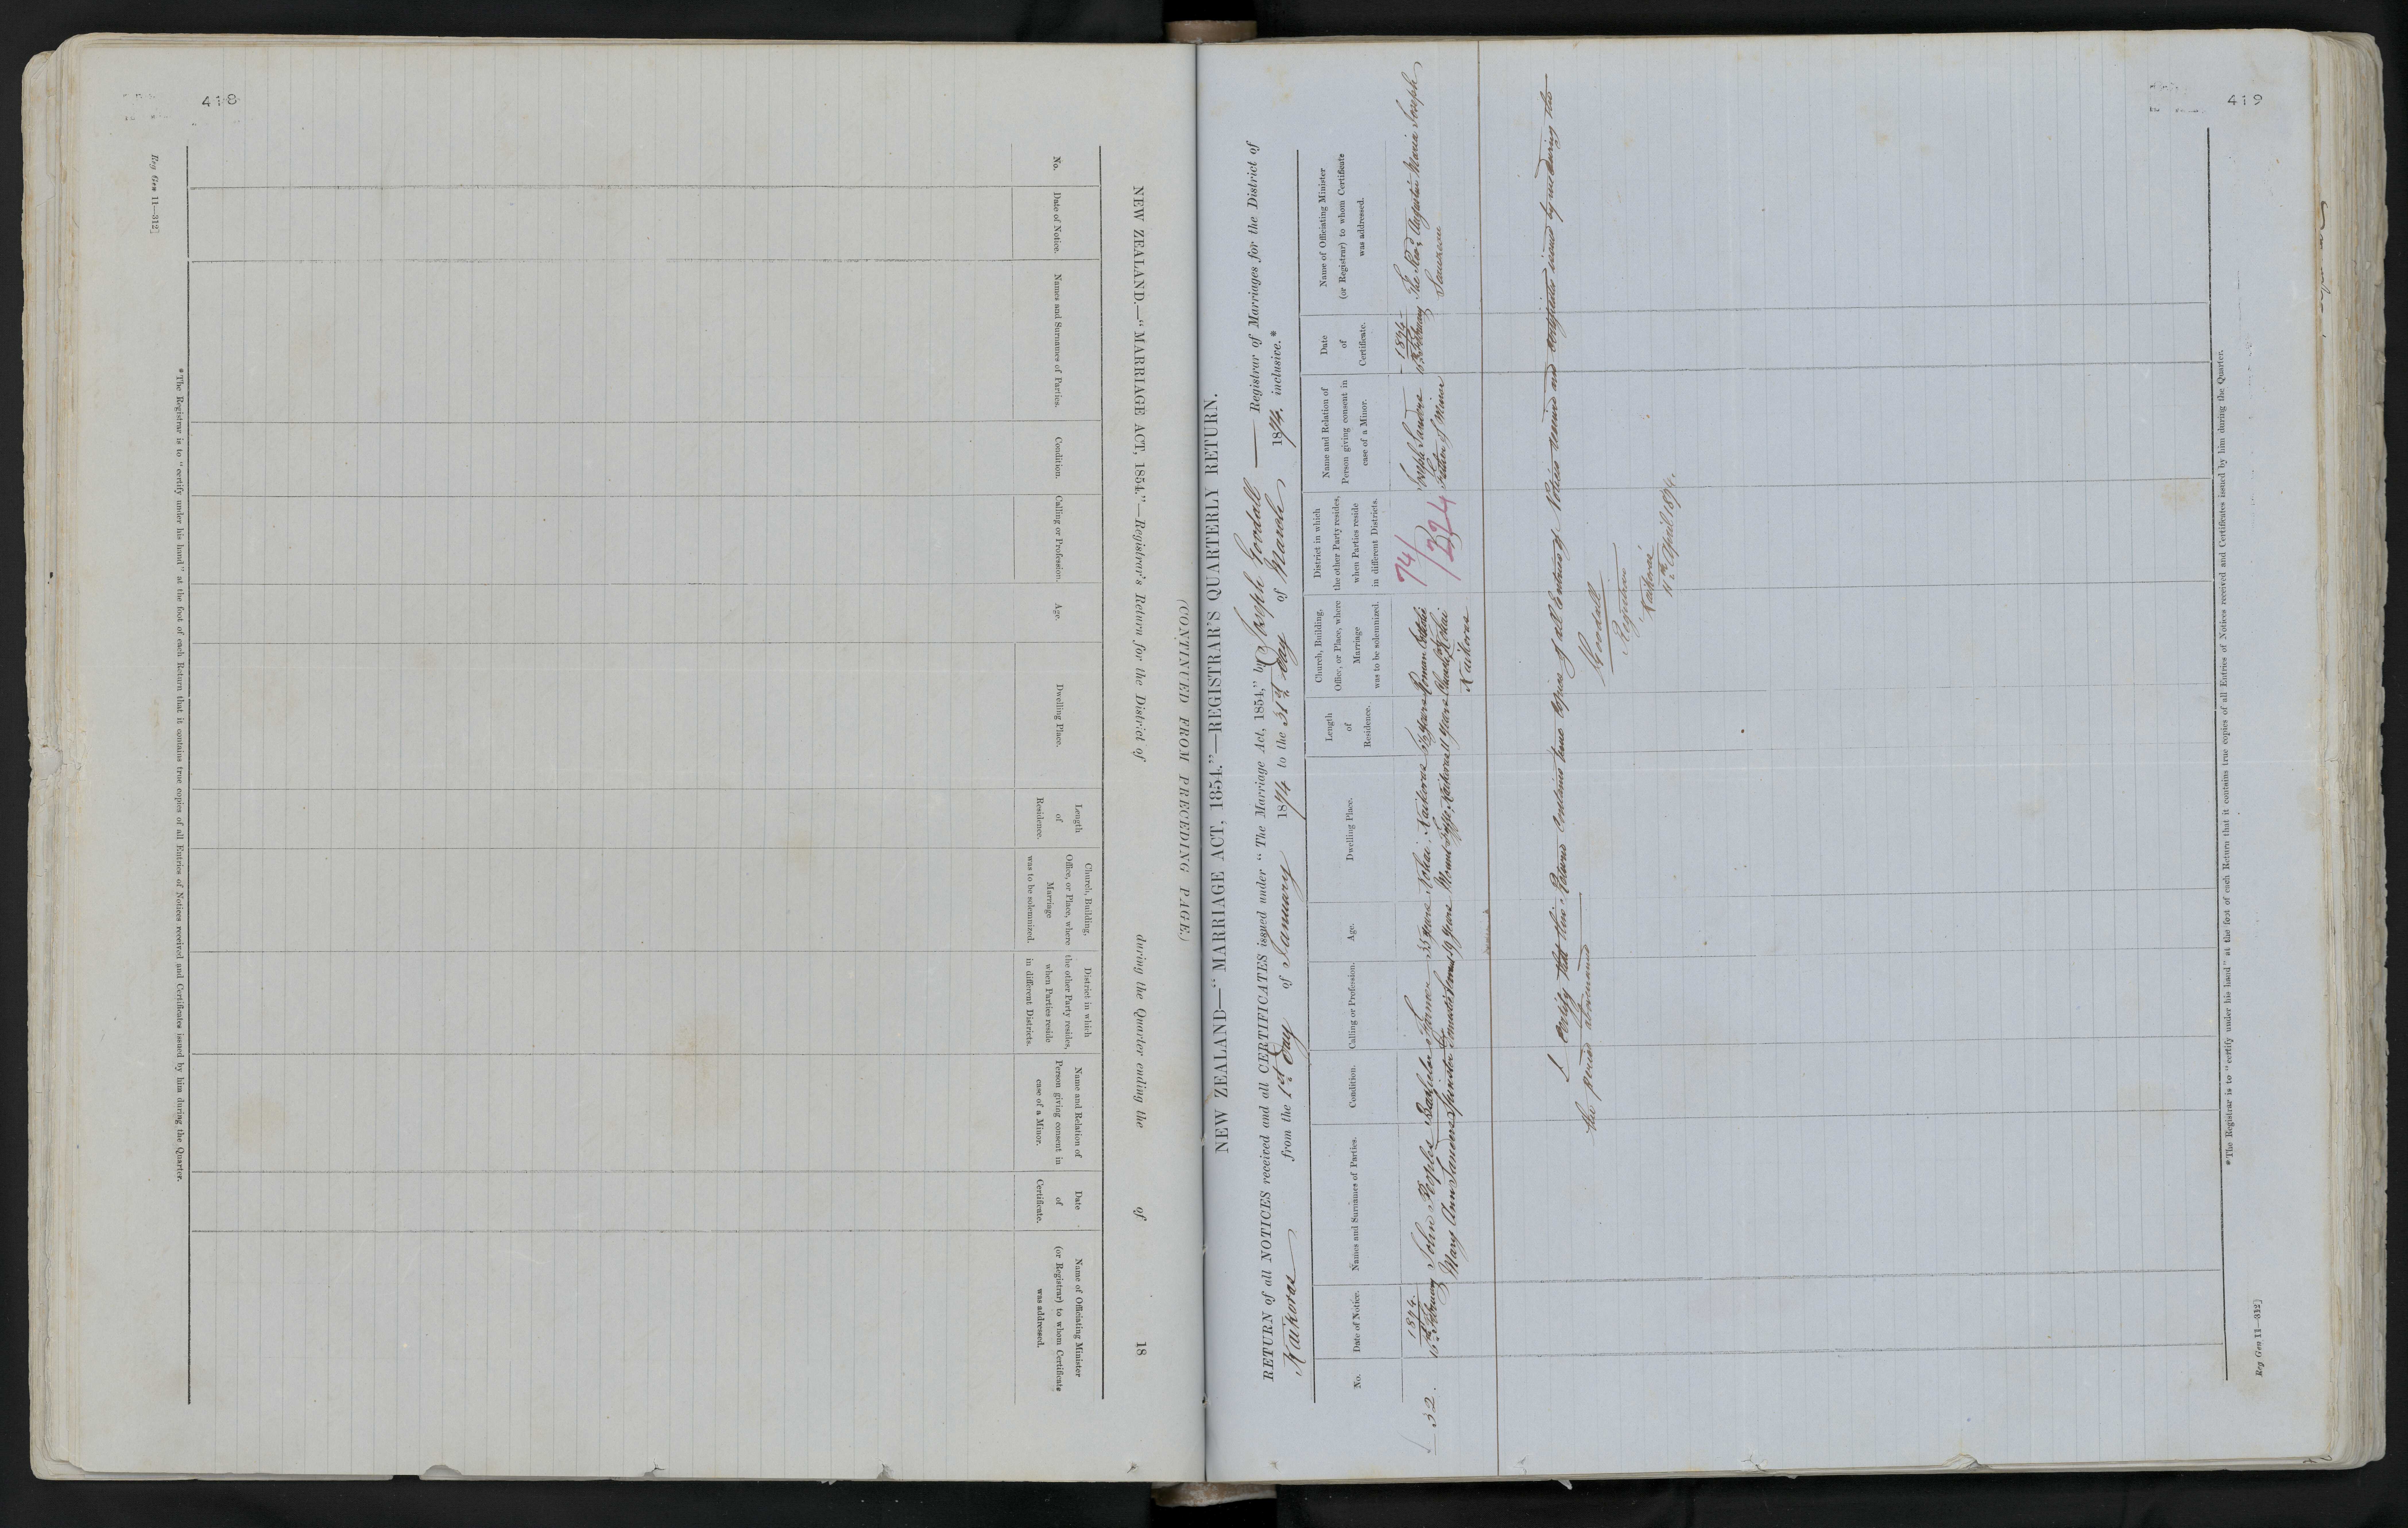 418
Reg Gen 11—312]
NEW ZEALAND.—"MARRIAGE ACT, 1854."—Registrar's Return for the District of during the Quarter ending the of 18
(CONTINUED FROM PRECEDING PAGE.)
No.
Date of Notice.
Names and Surnames of Parties.
Condition.
Calling or Profession.
Age.
Dwelling Place.
Length
of
Residence.
Church, Building,
Office, or Place, where
Marriage
was to be solemnized.
District in which
the other Party resides,
when Parties reside
in different Districts.
Name and Relation of
Person giving consent in
case of a Minor.
Date
of
Certificate.
Name of Officiating Minister
(or Registrar) to whom Certificate
was addressed.
*The Registrar is to "certify under his hand" at the foot of each Return that it contains true copies of all Entries of Notices received and Certificates issued by him during the Quarter.
419
NEW ZEALAND—"MARRIAGE ACT, 1854."—REGISTRAR'S QUARTERLY RETURN.
RETURN of all NOTICES received and all CERTIFICATES issued under "The Marriage Act, 1854," by Joseph Goodall Registrar of Marriages for the District of
Kaikoras from the 1st Day of January 1874 to the 31st Day of March 1874. inclusive.*
No.
Date of Notice.
Names and Surnames of Parties.
Condition.
Calling or Profession.
Age.
Dwelling Place.
Length
of
Residence.
Church, Building,
Office, or Place, where
Marriage
was to be solemnized.
District in which
the other Party resides,
when Parties reside
in different Districts.
Name and Relation of
Person giving consent in
case of a Minor.
Date
of
Certificate.
Name of Officiating Minister
(or Registrar) to whom Certificate
was addressed.
32.
1874.
15th February
John Peoples Bachelor Farmer 35 years Kohai, Kaikoras
Mary Ann Spinster 19 years Mount Fyffe, Kaikoras 11 years
Roman Catholic
Church, Kohai
Kaikoras
74/324
Joseph
Father of Minor
1874
15 February
The Revd Augustin Marie Joseph
I certify that this Return Contains true Copies of all Entries of Notices received and certificates issued by me during the
the period aforenamed
J Goodall
Registrar
Kaikoras
11th April 1874.
*The Registrar is to "certify under his hand" at the foot of each Return that it contains true copies of all Entries of Notices received and Certificates issued by him during the Quarter.
Reg Gen 11—312]